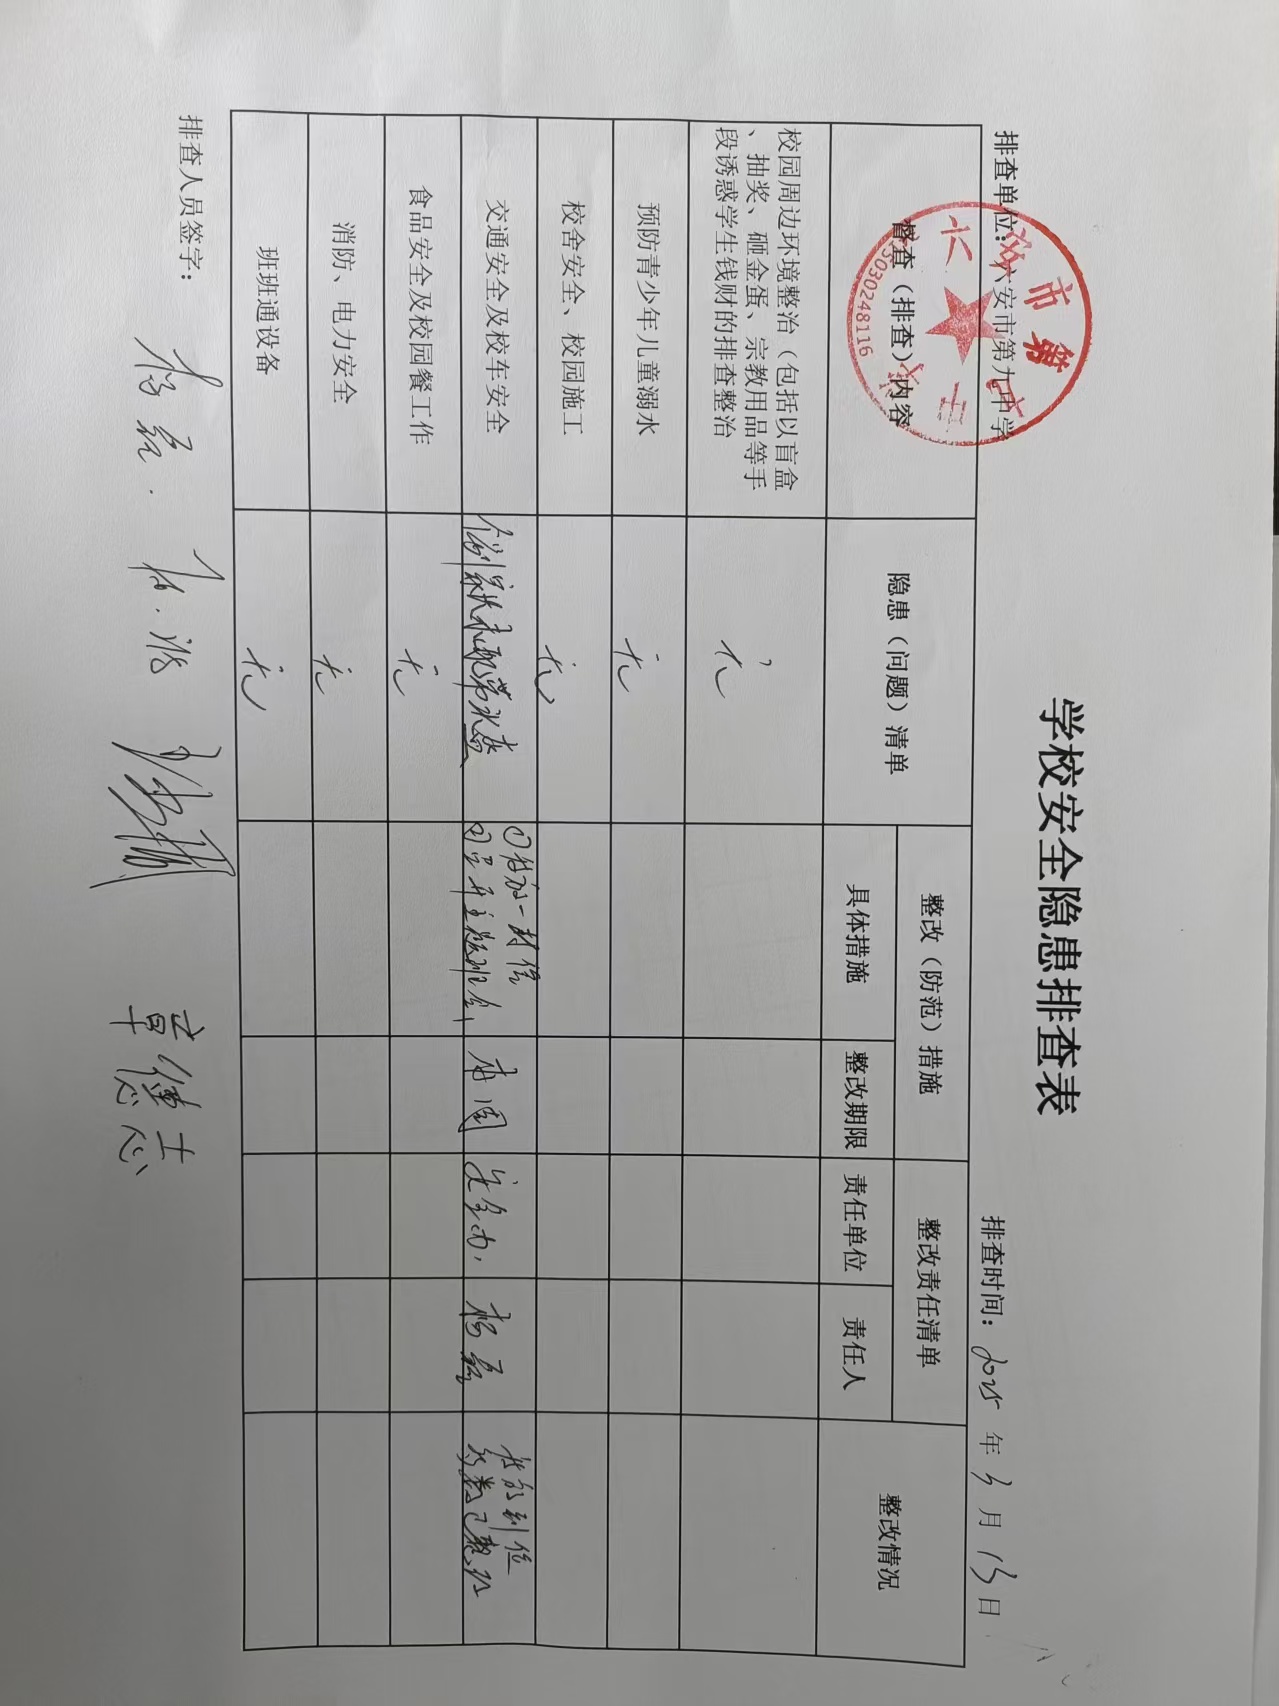 学校安全隐患排查表
排查单位：六安市第九中学
排查时间：2025 年 3 月 13 日
督查（排查）内容
隐患（问题）清单
整改（防范）措施
整改责任清单
整改情况
具体措施
整改期限
责任单位
责任人
校园周边环境整治（包括以盲盒
、抽奖、砸金蛋、宗教用品等手
段诱惑学生钱财的排查整治
无
预防青少年儿童溺水
无
校舍安全、校园施工
无
交通安全及校车安全
个别家长未配带头盔
①发放一封信
②召开主题班会
本周
安全办
杨磊
发放到位
多数已整改
食品安全及校园餐工作
无
消防、电力安全
无
班班通设备
无
排查人员签字：
杨磊
章德志
5030248116